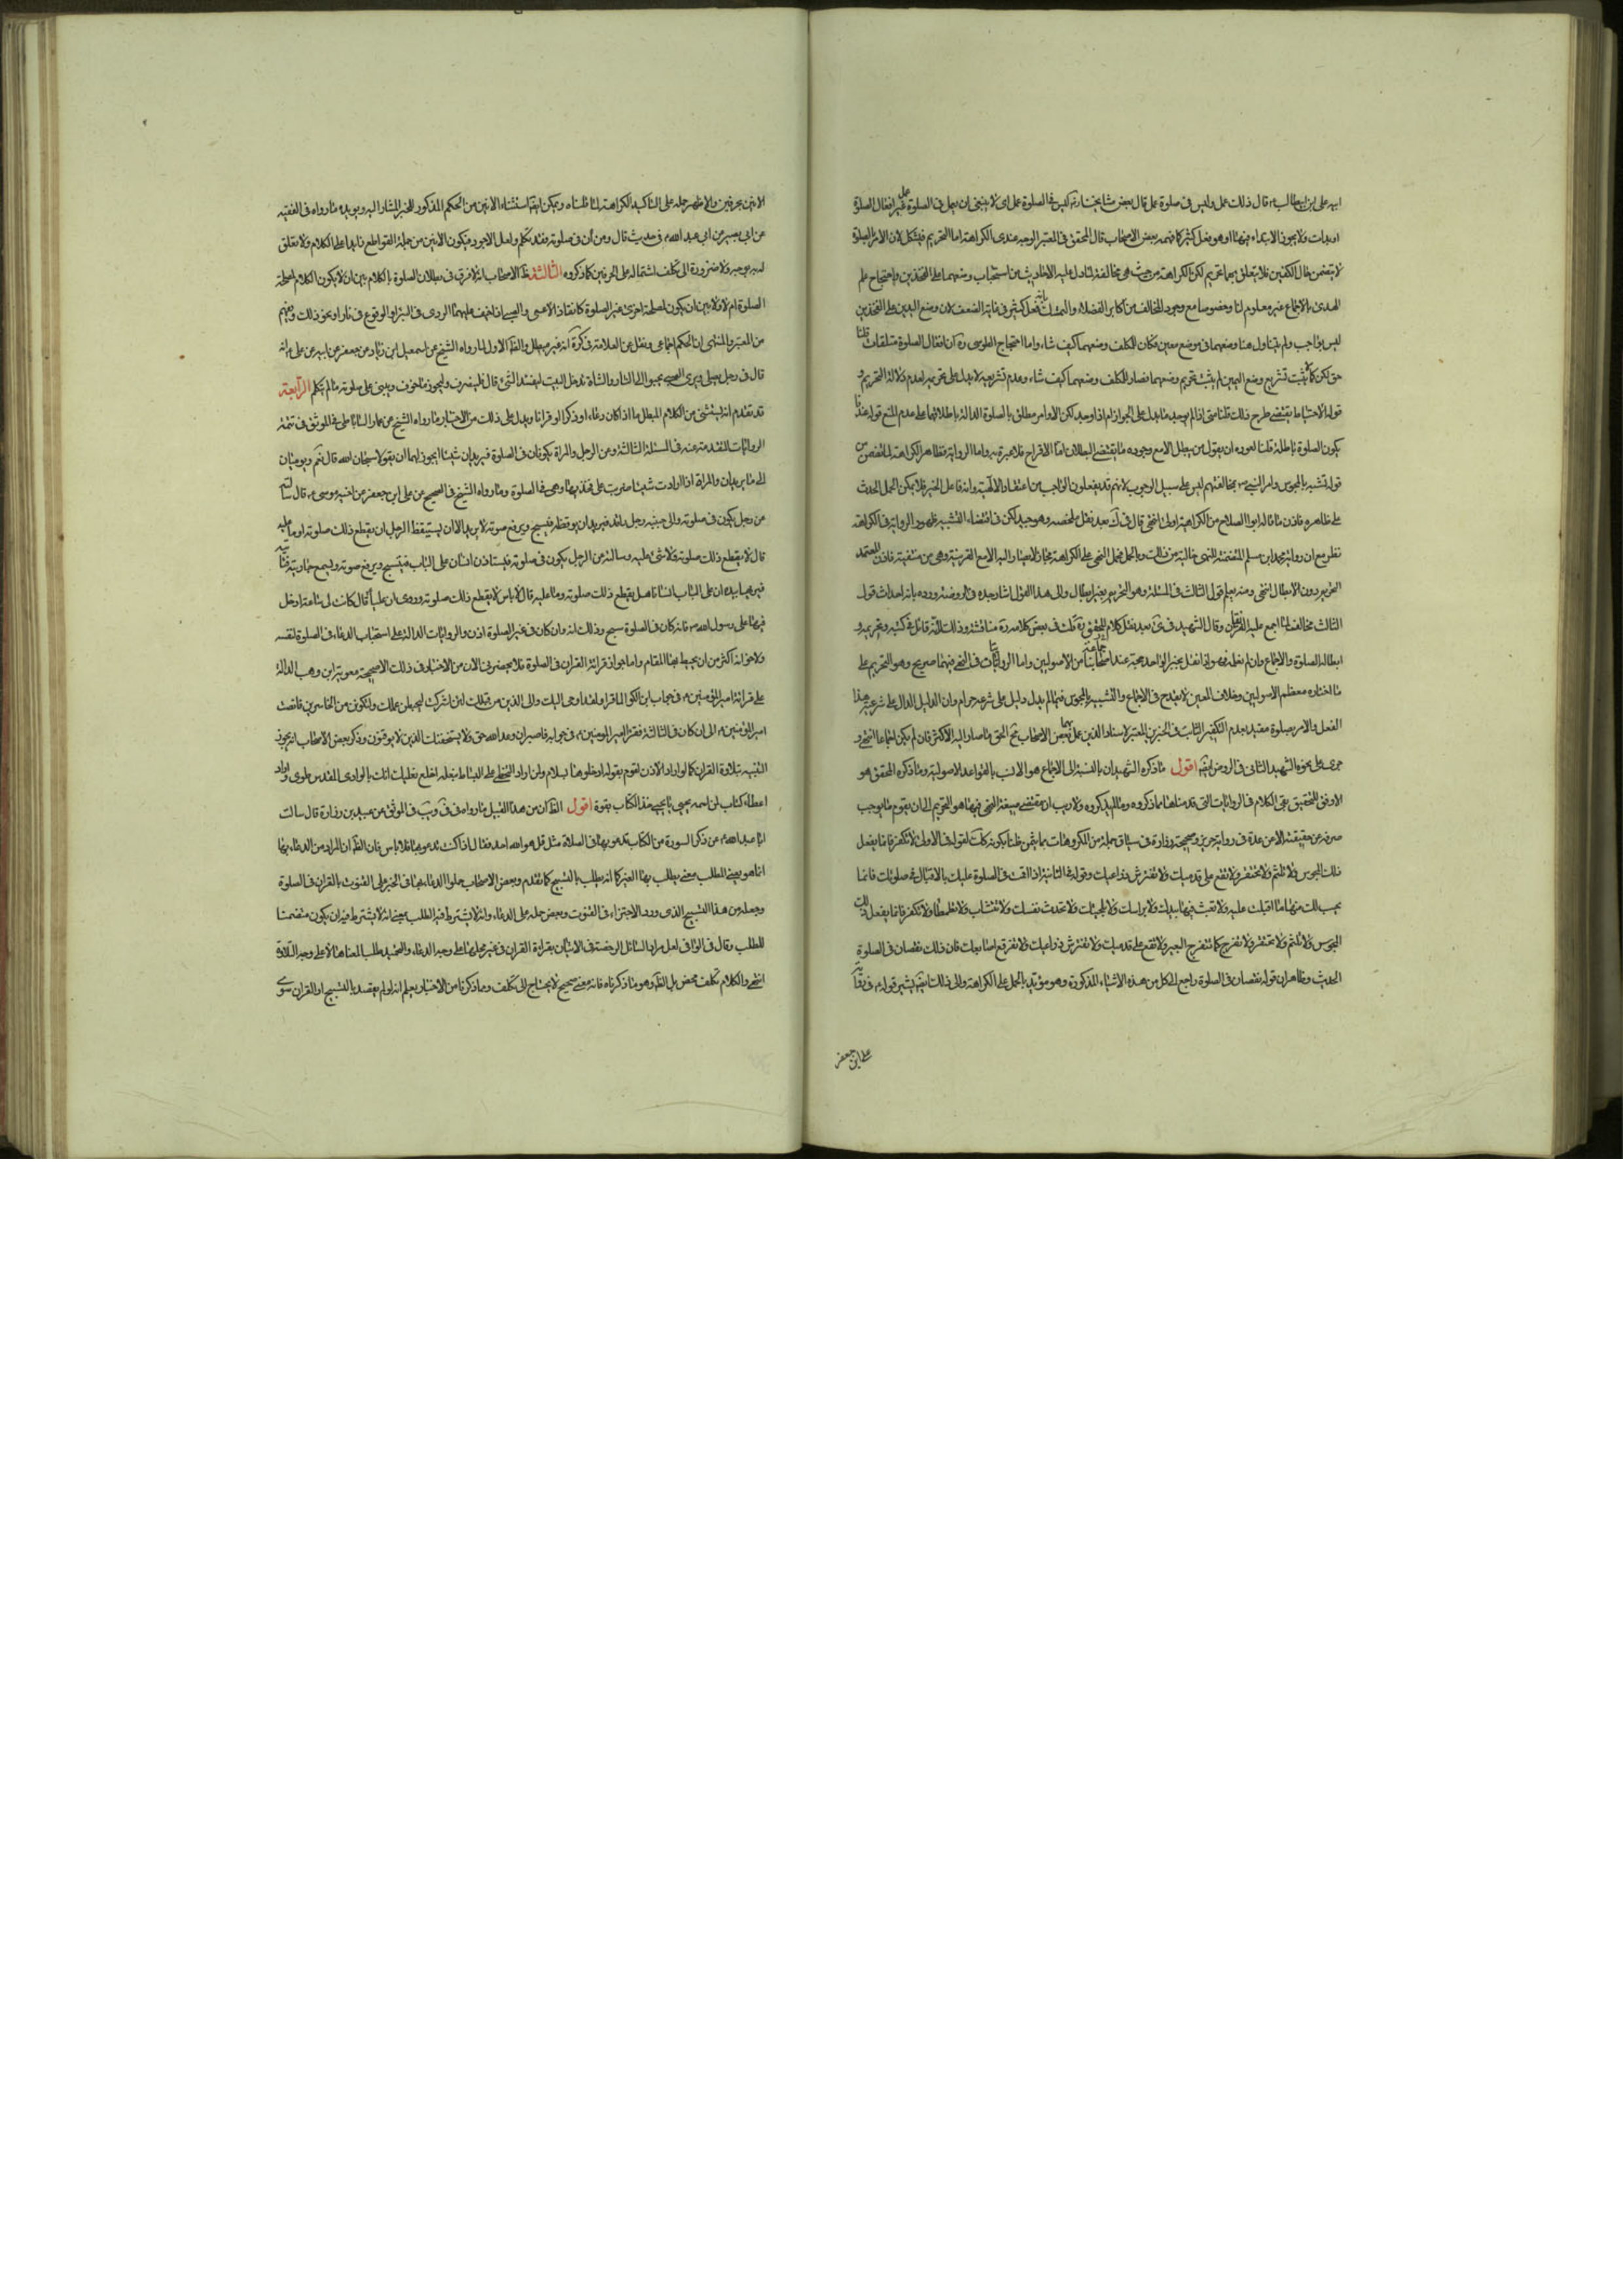 ابيه علي بن ابيطالب ع قال قال ذلك عمل وليس في صلوة عمل قال بعض مشايخنا رة اي ليس في الصلوة عمل اي لا ينبغي ان يعمل في الصلوة عمل غير افعال الصلوة
قال المحقق في المعتبر الوجه عندي الكراهة اما التحريم فيشكل لان الامر بالصلوة
لا يتضمن حال الكفين فلا يتعلق بهما تحريم لكن الكراهة من حيث هي مخالفة لما دل عليه الاحاديث من استحباب وضعهما على الفخذين واحتجاج علم
الهدى بالاجماع غير معلوم لنا وخصوصا مع وجود المخالف من اكابر الفضلاء والتمسك بانه فعل كثير في غاية الضعف لان وضع اليدين على الفخذين
ليس بواجب ولم يتناول هنا وضعهما في موضع معين فكان للمكلف وضعهما كيف شاء واما احتجاج الطوسي ره بان افعال الصلوة متلقات قلنا
حق لكن كما لم يثبت تشريع وضع اليمين لم يثبت تحريم وضعهما فصار للمكلف وضعهما كيف شاء وعدم تشريعه لا يدل على تحريمه لعدم دلالة التحريم و
قوله الاحتياط يقتضي طرح ذلك قلنا متى اذا لم يوجد ما يدل على الجواز ام اذا وجد لكن الاوامر مطلق بالصلوة الدالة باطلاقها على عدم المنع قوله عندنا
يكون الصلوة باطلة قلنا
قوله تشبه بالمجوس وامر النبي ص بمخالفتهم ليس على سبيل الوجوب لانهم قد يفعلون الواجب من اعتقاد الالهية وانه فاعل الخير فلا يمكن حمل الحديث
على ظاهره فاذن ما قاله ابو الصلاح من الكراهة اولى انتهى
نظر مع ان رواية محمد ابن مسلم المتضمنة للنهي خالية من ذلك وبالجملة فحمل النهي على الكراهة مجاز لا يصار اليه الا مع القرينة وهي منتفية فاذن المعتمد
التحريم دون الابطال انتهى ومنه يعلم قول الثالث في المسئلة وهو التحريم بغير ابطال
الثالث مخالف لما اجمع عليه الفريقان وقال الشهيد في
ابطاله الصلوة والاجماع وان لم نعلمه فهو اذا نقل بخبر الواحد حجة عند جماعة من الاصوليين واما الروايات فالنهي فيها صريح وهو للتحريم على
ما اختاره معظم الاصوليين وخلاف المعين لا يقدح في الاجماع والتشبيه بالمجوس فيما لم يدل دليل على شرعيته حرام وان الدليل الدال على شرعية هذا
الفعل والامر بصلوة مقيد بعدم التكفير الثابت في الخبرين المعتبر الاسناد الذين عمل بهما بعض الاصحاب فح الحق ما صار اليه الاكثر فان لم يكن اجماعا انتهى و
جرى على نحوه الشهيد الثاني في الروض ايضا اقول ما ذكره الشهيدان بالنسبة الى الاجماع هو الانسب بالقواعد الاصولية وما ذكره المحقق هو
الاوفق بالتحقيق بقي الكلام في الروايات التي قدمناها مما ذكروه ومما لم يذكروه ولا ريب ان مقتضى صيغة النهي فيها هو التحريم الى ان يقوم ما يوجب
ولا تكفر فانما يفعل
ذلك المجوس ولا تلثم ولا تحتفز ولا تقع على قدميك ولا تفترش ذراعيك وقوله في الثانية اذا قمت في الصلوة فعليك بالاقبال على صلوتك فانما
يحسب لك منها ما اقبلت عليه ولا تعبث فيها بيديك ولا براسك ولا بلحيتك ولا تحدث نفسك ولا تتثاب ولا تتمطا ولا تكفر فانما يفعل ذلك
المجوس ولا تلثم ولا تحتفز ولا تفرج كما يتفرج البعير ولا تقع على قدميك ولا تفترش ذراعيك ولا تفرقع اصابعك فان ذلك نقصان في الصلوة
الحديث وظاهر ان قوله نقصان في الصلوة راجع الى كل من هذه الاشياء المذكورة وهو مؤيد بالحمل على الكراهة والى ذلك ايضا يشير قوله ع في رواية
علي ابن جعفر
الانين بحرفين والاظهر حمله على التاكيد الكراهة لما قلناه ويمكن ايضا استثناء الانين من الحكم المذكور للخبر المشار اليه ويؤيده ما رواه في الفقيه
عن ابي بصير عن ابي عبد الله ع في حديث قال ومن أنّ في صلوته فقد تكلم ولعل الاجود فيكون الانين من جملة القواطع زايدا على الكلام ولا تعلق
له به بوجه ولا ضرورة الى تكلف اشتماله على الحرفين كما ذكروه الثالثة ظ الاصحاب انه لا فرق في بطلان الصلوة بالكلام بين ان لا يكون الكلام لمصلحة
الصلوة ام لا ولا بين ان يكون لمصلحة اخرى غير الصلوة كانقاذ الاعمى والصبي اذا خيف عليهما الردى في البئر او الوقوع في نار او نحو ذلك
من المعتبر والمنتهى ان الحكم اجماعي ونقل عن العلامة في كرة انه غير مبطل والظ الاول لما رواه الشيخ عن اسمعيل ابن زياد عن جعفر عن ابيه عن علي ع انه
قال في رجل يصلي ويرى الصبي يحبو الى النار والشاة تدخل البيت لتفسد الشئ قال فلينصرف وليحرز ما يتخوف ويبني على صلوته ما لم يتكلم الرابعة
قد تقدم انه يستثنى من الكلام المبطل ما اذا كان دعاء او ذكرا او قرانا ويدل على ذلك من الاخبار ما رواه الشيخ عن عمار الساباطي في الموثق في تتمة
الروايات المتقدمة عنه في المسئلة الثالثة وعن الرجل والمراة يكونان في الصلوة فيريدان شيئا ايجوز لهما ان يقولا سبحان الله قال نعم ويوميان
الى ما يريدان والمراة اذا ارادت شيئا ضربت على فخذيها وهي في الصلوة وما رواه الشيخ في الصحيح عن علي ابن جعفر عن اخيه موسى ع قال سألته
عن رجل يكون في صلوته والى جنبه رجل راقد فيريد ان يوقظه فيسبح ويرفع صوته لا يريد الا ان يستيقظ الرجل ان يقطع ذلك صلوته او ما عليه
قال لا يقطع ذلك صلوته ولا شئ عليه وسالته عن الرجل يكون في صلوته فيستاذن انسان على الباب فيسبح ويرفع صوته ويسمع جاريته فتاتيه
فيريها بيده ان على الباب انسانا هل يقطع ذلك صلوته وما عليه قال لا باس لا يقطع ذلك صلوته وروى ان عليا قال كانت لي ساعة ادخل
فيها على رسول الله ص فان كان في الصلوة سبح وذلك اذنه وان كان في غير الصلوة اذن والروايات الدالة على استحباب الدعاء في الصلوة لنفسه
ولاخوانه اكثر من ان يحيط بها المقام واما جواز قرائة القران في الصلوة فلا يحضرني الان من الاخبار في ذلك الا صحيحة معوية ابن وهب الدالة
على قرائة امير المؤمنين ع في جواب ابن الكوا لما قرا ولقد اوحي اليك والى الذين من قبلك لئن اشركت ليحبطن عملك ولتكونن من الخاسرين فانصت
امير المؤمنين ع الى ان كان في الثالثة فقرا امير المؤمنين ع في جوابه فاصبر ان وعد الله حق ولا يستخفنك الذين لا يوقنون وذكر بعض الاصحاب انه يجوز
التنبيه بتلاوة القران كما لو اراد الاذن لقوم بقوله ادخلوها بسلام ولمن اراد التخطي على البساط بنعله اخلع نعليك انك بالوادي المقدس طوى واراد
اعطاء كتاب لمن اسمه يحيى يا يحيى خذ الكتاب بقوة اقول الظ ان من هذا القبيل ما رواه في في ويب في الموثق عن عبيد بن زرارة قال سالت
ابا عبد الله ع عن ذكر السورة من الكتاب يدعو بها في الصلاة مثل قل هو الله احد فقال اذا كنت تدعو بها فلا باس فان الظ ان المراد من الدعاء بها
انما هو بمعنى الطلب
وجعله من هذا التسبيح الذي ورد الاجتزاء في القنوت وبعض حمله على الدعاء وانه لا يشترط فيه الطلب بمعنى انه لا يشترط فيه ان يكون متضمنا
للطلب وقال في الوافي لعل مراد السائل الرخصة في الاتيان بقراءة القران في غير محلها على وجه الدعاء والتمجيد طلبا لمعناها لا على وجه التلاوة
انتهى والكلام تكلف محض بل الظ هو ما ذكرناه فانه معنى صحيح لا يحتاج الى تكلف ومما ذكرنا من الاخبار يعلم انه لو لم يقصد بالتسبيح او القران سوى